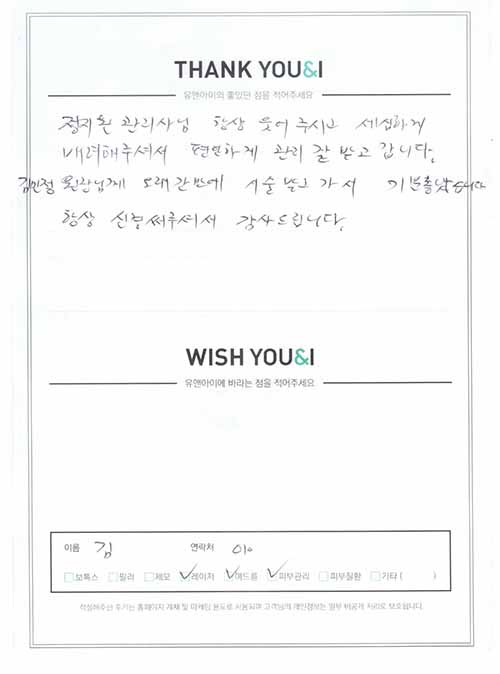 THANK YOU&I
유앤아이의 좋았던 점을 적어주세요
정지원 관리사님 항상 웃어 주시고 세심하게
배려해주셔서 편안하게 관리 잘 받고 갑니다.
김민정 원장님께 오래간만에 시술 받고 가서 기분좋습니다
항상 신경써주셔서 감사드립니다.
WISH YOU&I
유앤아이에 바라는 점을 적어주세요
이름 김 연락처 010
보톡스 필러 제모 레이저 여드름 피부관리 피부질환 기타 ( )
작성해주신 후기는 홈페이지 게재 및 마케팅 용도로 사용되며 고객님의 개인정보는 일부 비공개 처리로 보호됩니다.